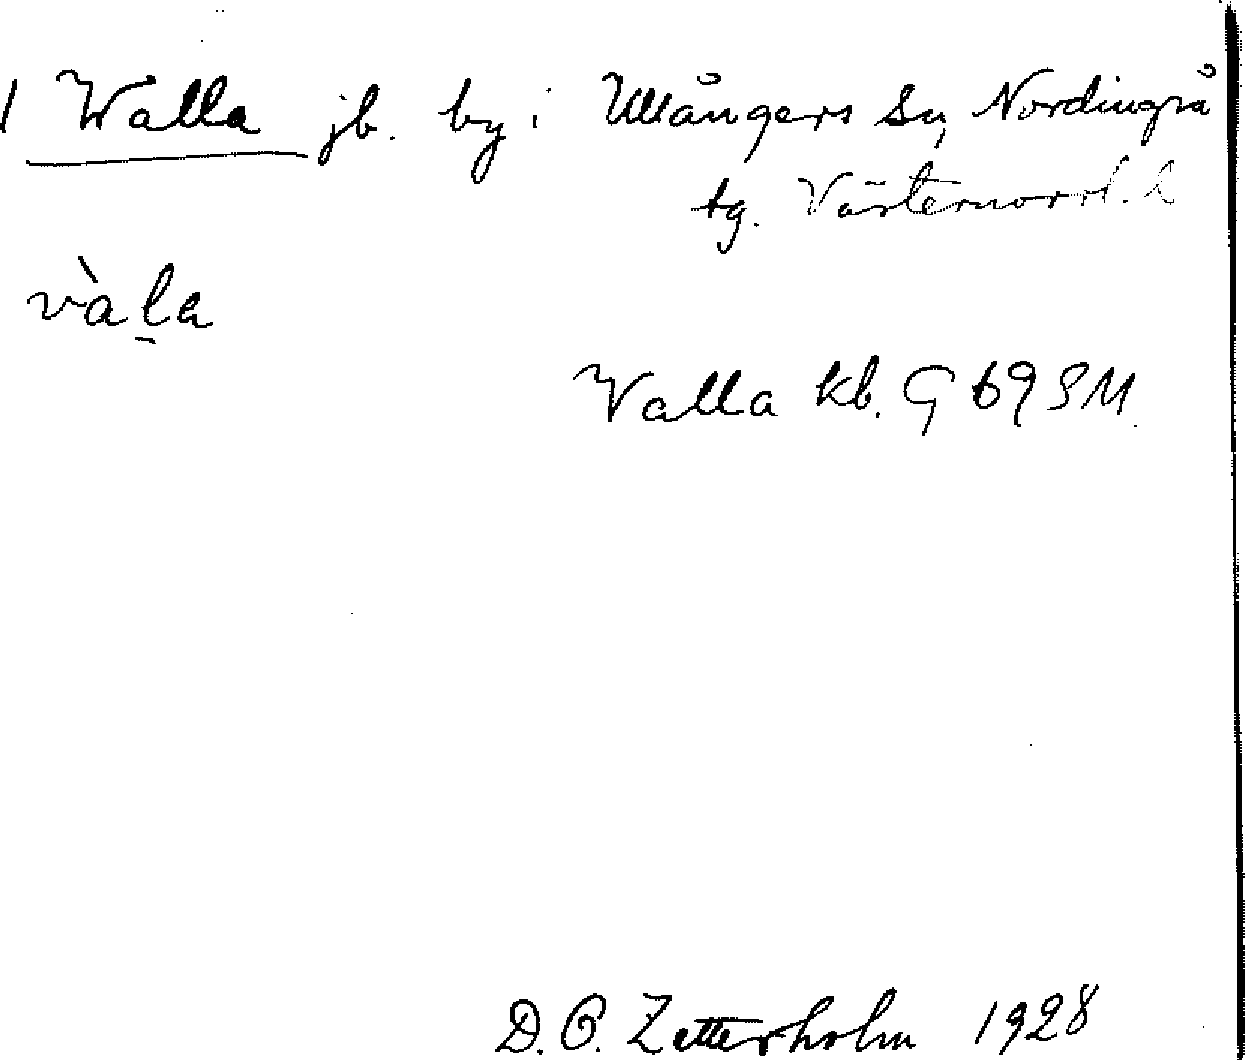 1 Walla jb. by i Ullångers Sn Nordingrå
tg. Västernorrl. l
vàl̠a
Walla kb. G 69 SM
D. O. Zetterholm 1928